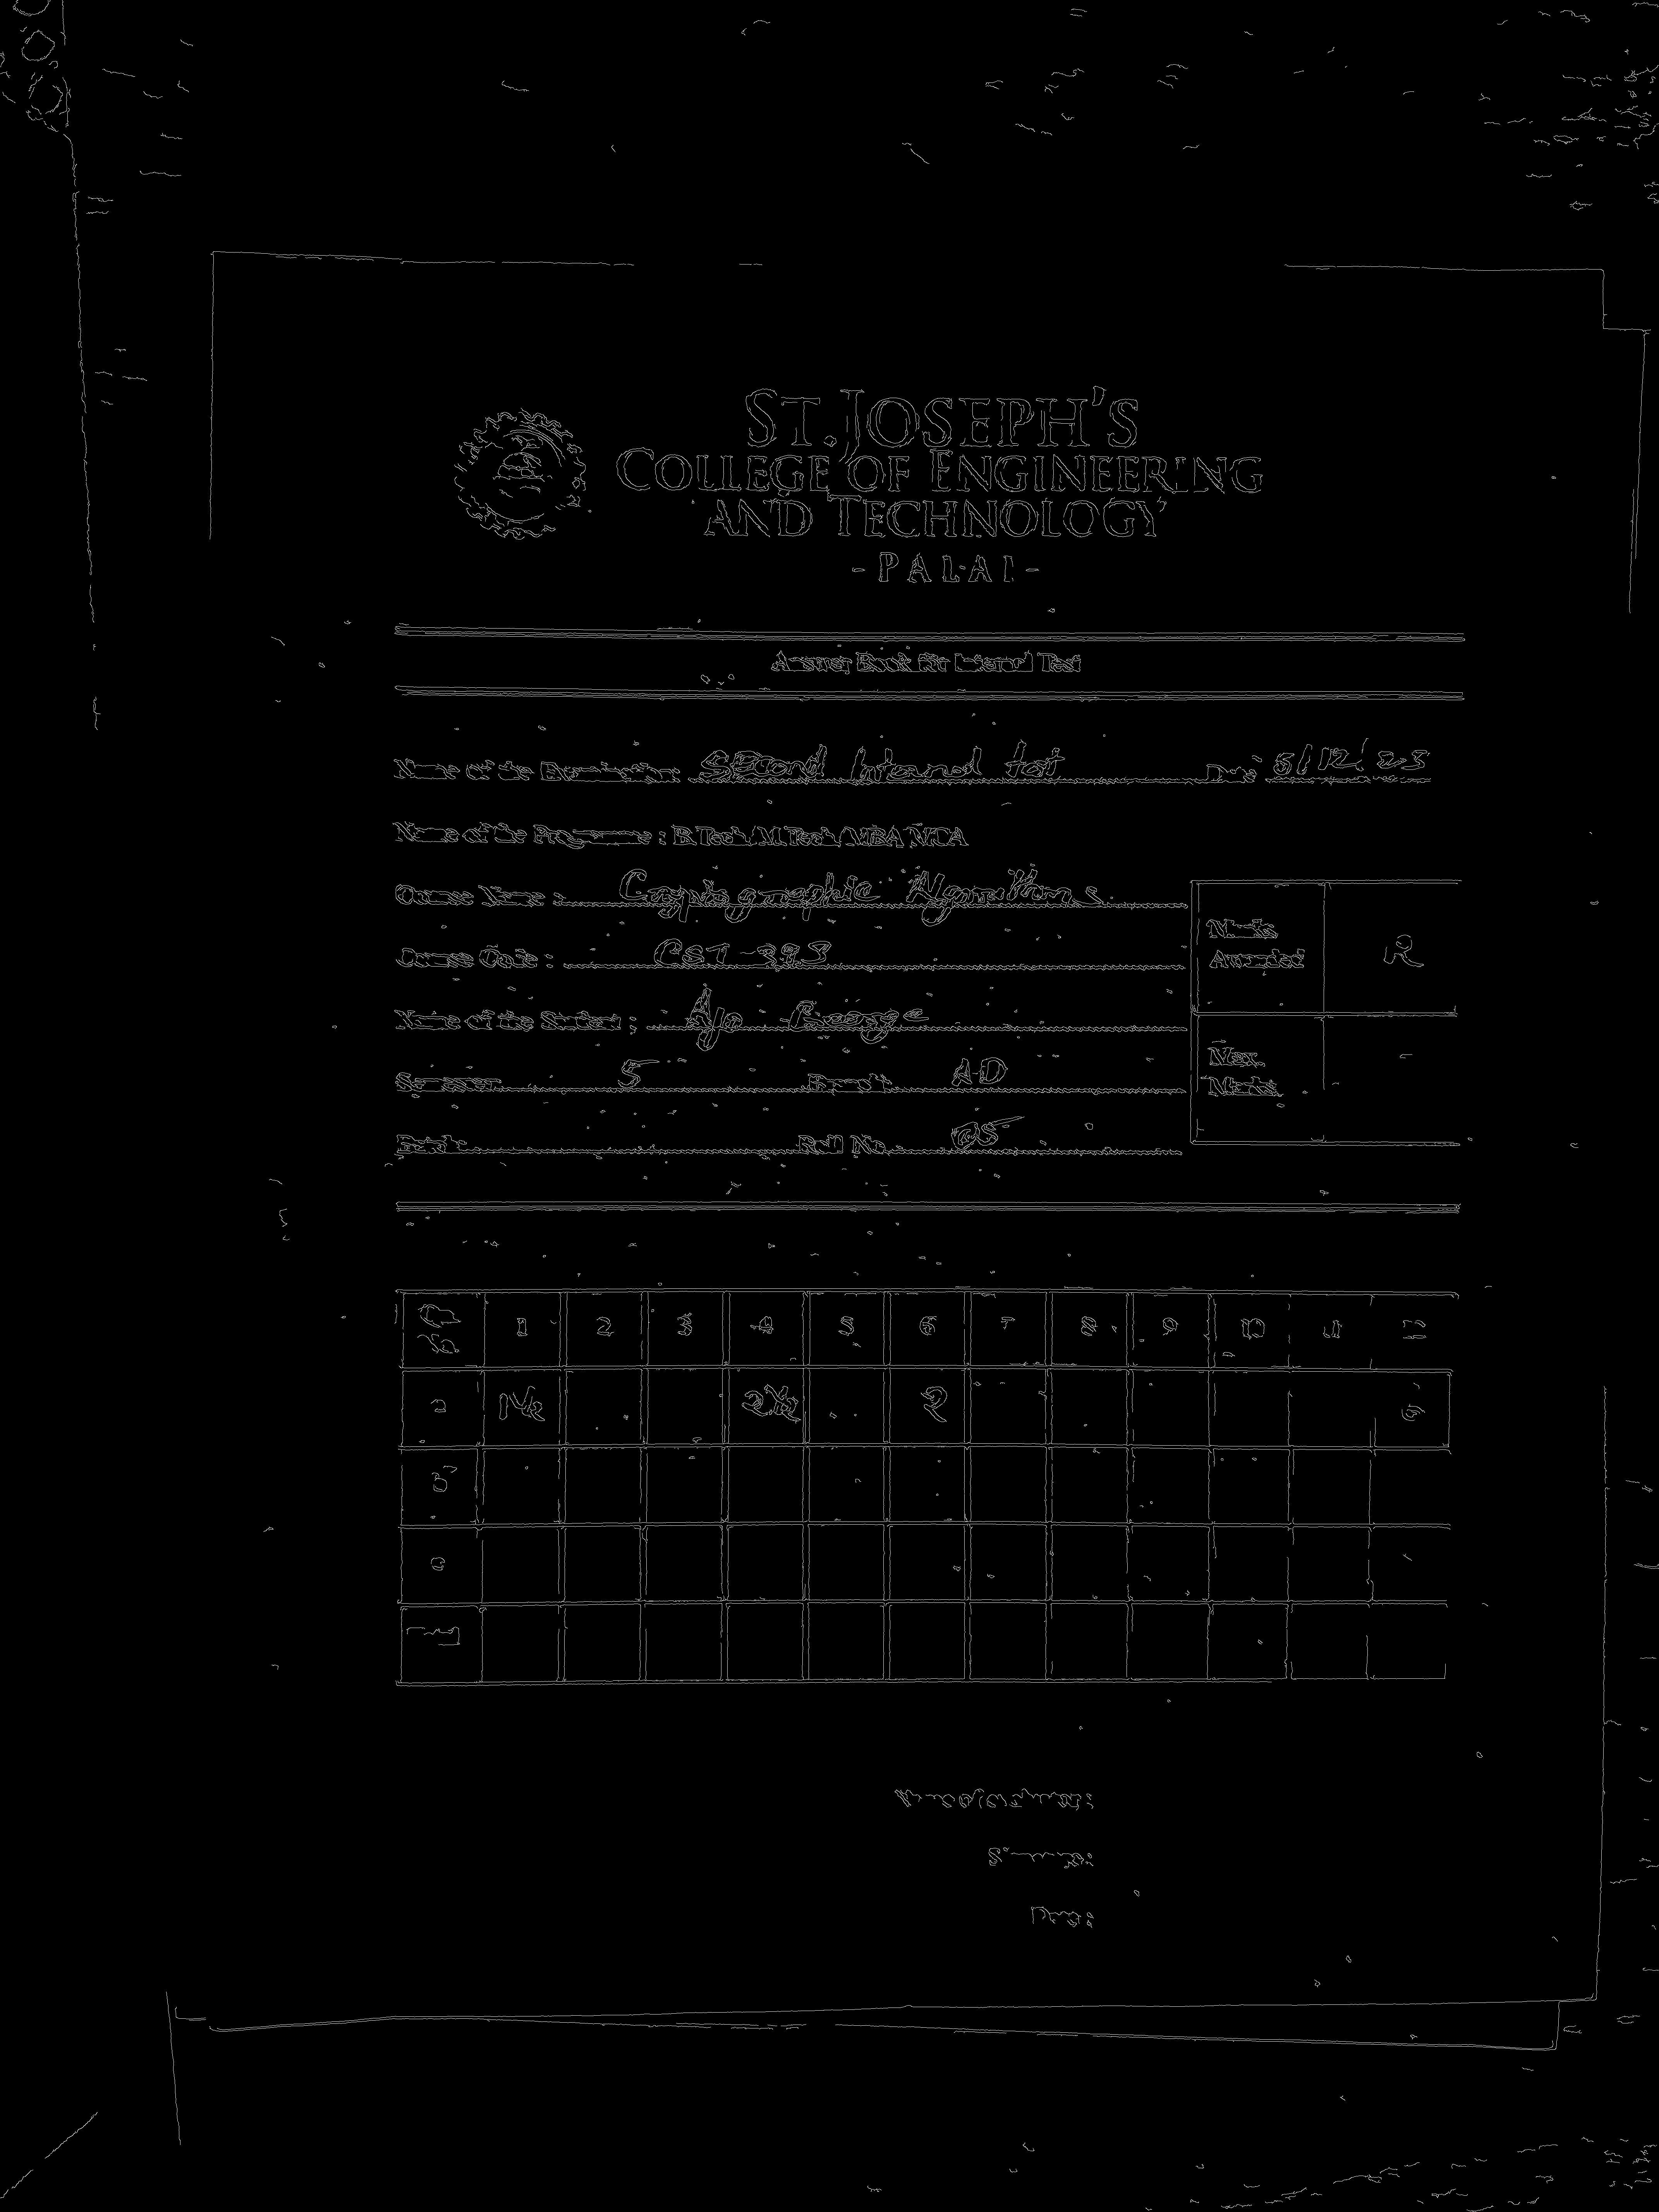 ST. JOSEPH'S
COLLEGE OF ENGINEERING
AND TECHNOLOGY
- PALAI -
Answer Book for Internal Test
Name of the Examination: Second Internal test Date 5/12/23
Name of the Programme : B.Tech/M.Tech/MBA/MCA
Course Name : Cryptographic Algorithms
Course Code : CST 393
Marks Awarded
Name of the Student : George
Semester 5 Branch AD
Max. Marks
Batch Roll No. 05
Q No. 1 2 3 4 5 6 7 8 9 10 11 12
a 1½ 2½ 2
b
c
Name of Examiner:
Signature:
Date: